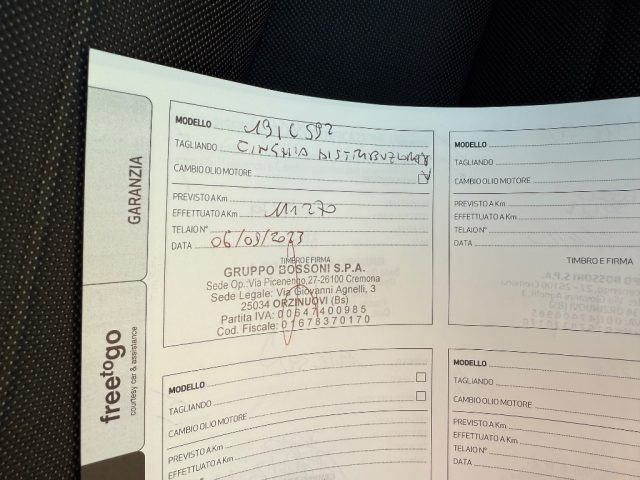 GARANZIA
freetogo
courtesy car & assistance
MODELLO 191C592
TAGLIANDO CINGHIA DISTRIBUZIONE
CAMBIO OLIO MOTORE
PREVISTO A Km
EFFETTUATO A Km 111270
TELAIO N°
DATA 06/09/2023
TIMBRO E FIRMA
GRUPPO BOSSONI S.P.A.
Sede Op.:Via Picenengo,27-26100 Cremona
Sede Legale: Via Giovanni Agnelli, 3
25034 ORZINUOVI (Bs)
Partita IVA: 00647400985
Cod. Fiscale: 01678370170
MODELLO
TAGLIANDO
CAMBIO OLIO MOTORE
PREVISTO A Km
EFFETTUATO A Km
TELAIO N°
DATA
TIMBRO E FIRMA
MODELLO
TAGLIANDO
CAMBIO OLIO MOTORE
PREVISTO A Km
EFFETTUATO A Km
MODELLO
TAGLIANDO
CAMBIO OLIO MOTORE
PREVISTO A Km
EFFETTUATO A Km
TELAIO N°
DATA